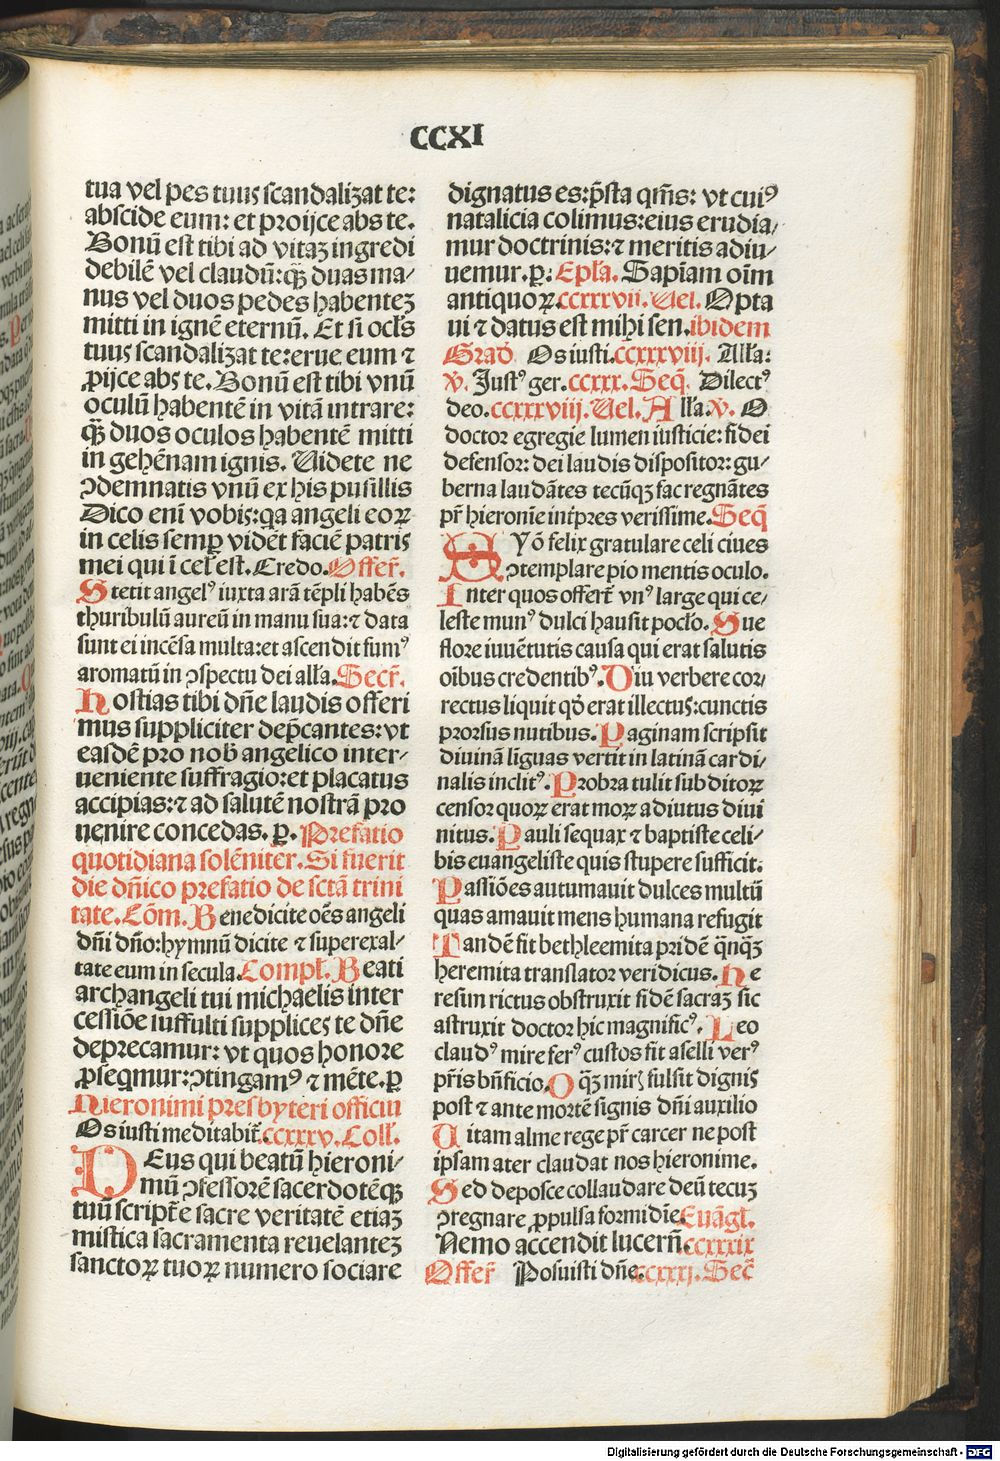 CCXI
tua vel pes tuus scandalizat te:
abscide eum: et proijce abs te.
Bonū est tibi ad vitaꝫ ingredi
debilē vel claudū: q̄ꝫ duas ma⸗
nus vel duos pedes habenteꝫ
mitti in ignē eternū. Et si ocl̄s
tuus scandalizat te: erue eum ⁊
ꝓijce abs te. Bonū est tibi vnū
oculū habentē in vitā intrare:
q̄ꝫ duos oculos habentē mitti
in gehēnam ignis. Uidete ne
ↄdemnatis vnū ex his pusillis
Dico enī vobis: qa angeli eoꝝ
in celis semꝑ vidēt faciē patris
mei qui ī cel̄ est. Credo. Offer̄.
Stetit angelꝰ iuxta arā tēpli habēs
thuribulū aureū in manu sua: ⁊ data
sunt ei incēsa multa: et ascendit fumꝰ
aromatū in ↄspectu dei all̄a. Secr̄.
Hostias tibi dn̄e laudis offeri
mus suppliciter dep̄cantes: vt
easdē pro nob̄ angelico inter⸗
ueniente suffragio: et placatus
accipias: ⁊ ad salutē nostrā pro
uenire concedas. ꝑ. Prefatio
quotidiana solēniter. Si fuerit
die dn̄ico prefatio de sctā trini
tate. Cōm. Benedicite oēs angeli
dn̄i dn̄o: hymnū dicite ⁊ superexal⸗
tate eum in secula. Compl̄. Beati
archangeli tui michaelis inter
cessiōe suffulti supplices te dn̄e
deprecamur: vt quos honore
ꝓseqmur: ↄtingamꝰ ⁊ mēte. ꝑ
Hieronimi presbyteri officiu
Os iusti meditabit̄. ccxxxv. Coll̄.
DEus qui beatū hieroni⸗
mū ↄfessorē sacerdotēqꝫ
tuū script̄e sacre veritatē etiaꝫ
mistica sacramenta reuelanteꝫ
sanctoꝝ tuoꝝ numero sociare
dignatus es: p̄sta qm̄s: vt cuiꝰ
natalicia colimus: eius erudia⸗
mur doctrinis: ⁊ meritis adiu⸗
uemur. ꝑ. Epl̄a. Sapīam oīm
antiquoꝝ. ccxxxvii. Uel. Opta
ui ⁊ datus est mihi sen. ibidem
Grad̄. Os iusti. ccxxxviij. All̄a:
v̄. Justꝰ ger. ccxxx. Seq̄. Dilectꝰ
deo. ccxxxviij. Uel. All̄a. v̄. O
doctor egregie lumen iusticie: fidei
defensor: dei laudis dispositor: gu⸗
berna laudātes tecūqꝫ fac regnātes
pr̄ hieronie int̄pres verissime. Seq̄
AYō felix gratulare celi ciues
ↄtemplare pio mentis oculo.
Inter quos offert̄ vnꝰ large qui ce⸗
leste munꝰ dulci hausit pocl̄o. Sue
flore iuuētutis causa qui erat salutis
oībus credentibꝰ. Diu verbere cor⸗
rectus liquit qd̄ erat illectus: cunctis
prorsus nutibus. Paginam scripsit
diuinā liguas vertit in latinā cardi⸗
nalis inclitꝰ. Probra tulit subditoꝝ
censor quoꝝ erat moꝝ adiutus diui
nitus. Pauli sequax ⁊ baptiste celi⸗
bis euangeliste quis stupere sufficit.
Passiōes autumauit dulces multū
quas amauit mens humana refugit
Tandē fit bethleemita pridē q̄nqꝫ
heremita translator veridicus. He
resim rictus obstruxit fidē sacraꝫ sic
astruxit doctor hic magnificꝰ. Leo
claudꝰ mire ferꝰ custos fit aselli verꝰ
pr̄is bn̄ficio. O qꝫ miris fulsit dignis
post ⁊ ante mortē signis dn̄i auxilio
Uitam alme rege pr̄ carcer ne post
ipsam ater claudat nos hieronime.
Sed deposce collaudare deū tecuꝫ
ↄregnare ꝓpulsa formidīe. Euāgl̄.
Nemo accendit lucern̄. ccxxxix
Offer̄ Posuisti dn̄e. ccxxxj. Sec̄
Digitalisierung gefördert durch die Deutsche Forschungsgemeinschaft - DFG